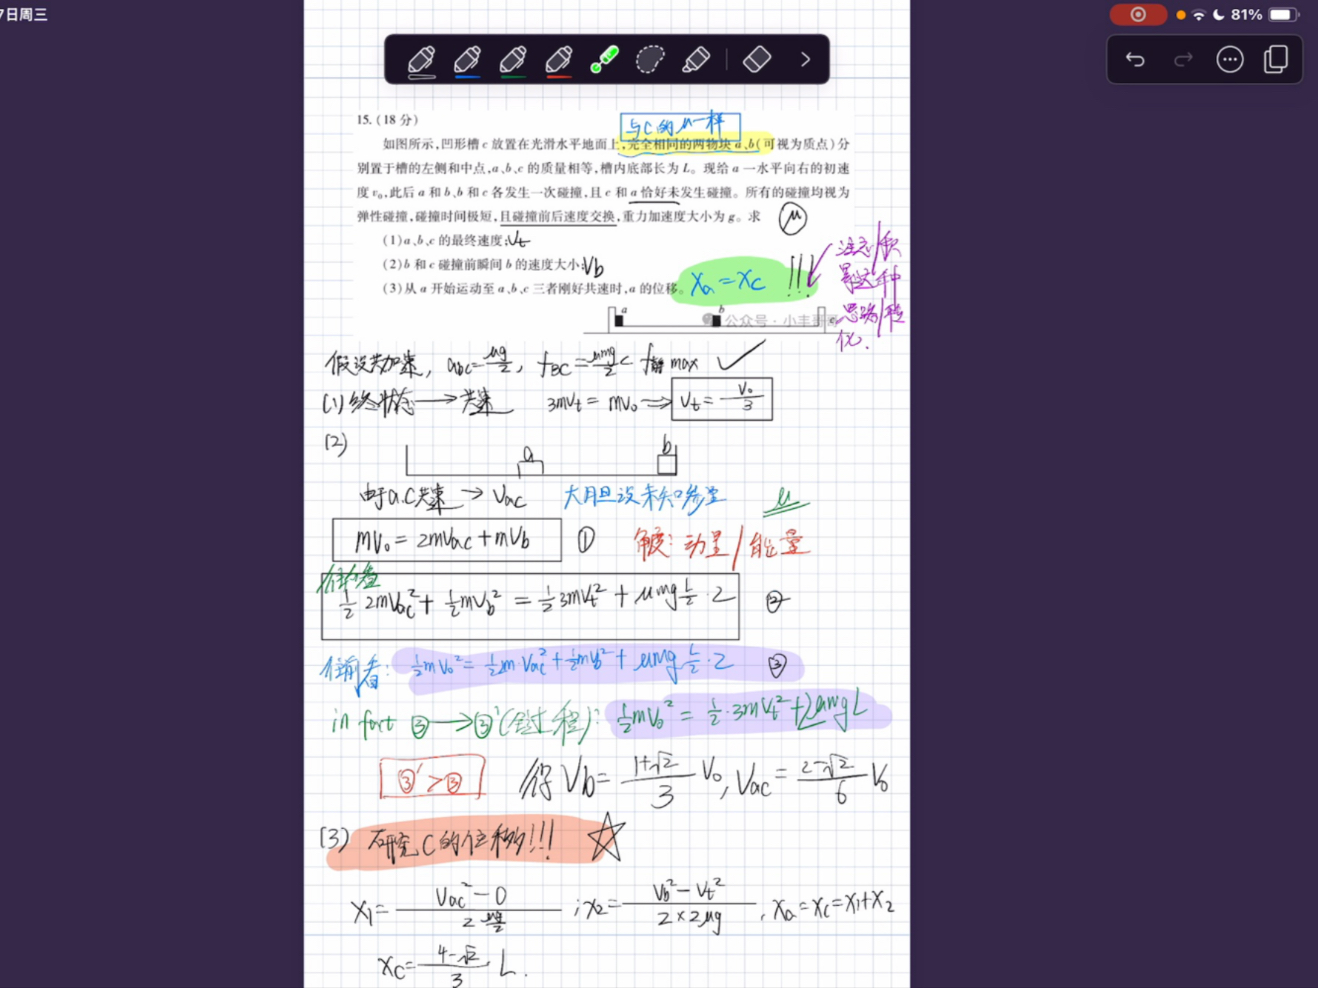 7日周三
81%
15.(18分)
与C的μ一样
如图所示,凹形槽 c 放置在光滑水平地面上,完全相同的两物块 a、b(可视为质点)分
别置于槽的左侧和中点,a、b、c 的质量相等,槽内底部长为 L。现给 a 一水平向右的初速
度 v₀,此后 a 和 b、b 和 c 各发生一次碰撞,且 c 和 a 恰好未发生碰撞。所有的碰撞均视为
弹性碰撞,碰撞时间极短,且碰撞前后速度交换,重力加速度大小为 g。求 μ
(1)a、b、c 的最终速度;Vt
(2)b 和 c 碰撞前瞬间 b 的速度大小;Vb
(3)从 a 开始运动至 a、b、c 三者刚好共速时,a 的位移。
Xa=Xc !!!
注意/积
累这种
思路/转
化.
a b c
公众号·小丰哥哥
假设共加速, abc=μg/2, fBC=μmg/2< f静max ✓
(1)终状态→共速 3mVt=mV₀→Vt=V₀/3
(2)
a b
由于a.C共速→Vac 大胆设未知参量 μ
mV₀=2mVac+mVb ① 角度:动量/能量
½2mVac²+½mVb²=½3mVt²+μmg L/2·2 ②
½mV₀²=½2m·Vac²+½mVb²+μmg L/2·2 ③
in fact ③→③'(全过程): ½mV₀²=½·3mVt²+2μmgL
③'>③ 得Vb=(1+√2)/3 V₀,Vac=(2-√2)/6 V₀
(3) 研究C的位移!!! ☆
X₁=(Vac²-0)/(2 μg/2) ; X₂=(Vb²-Vt²)/(2×2μg) , Xa=Xc=X₁+X₂
Xc=(4-√2)/3 · L.